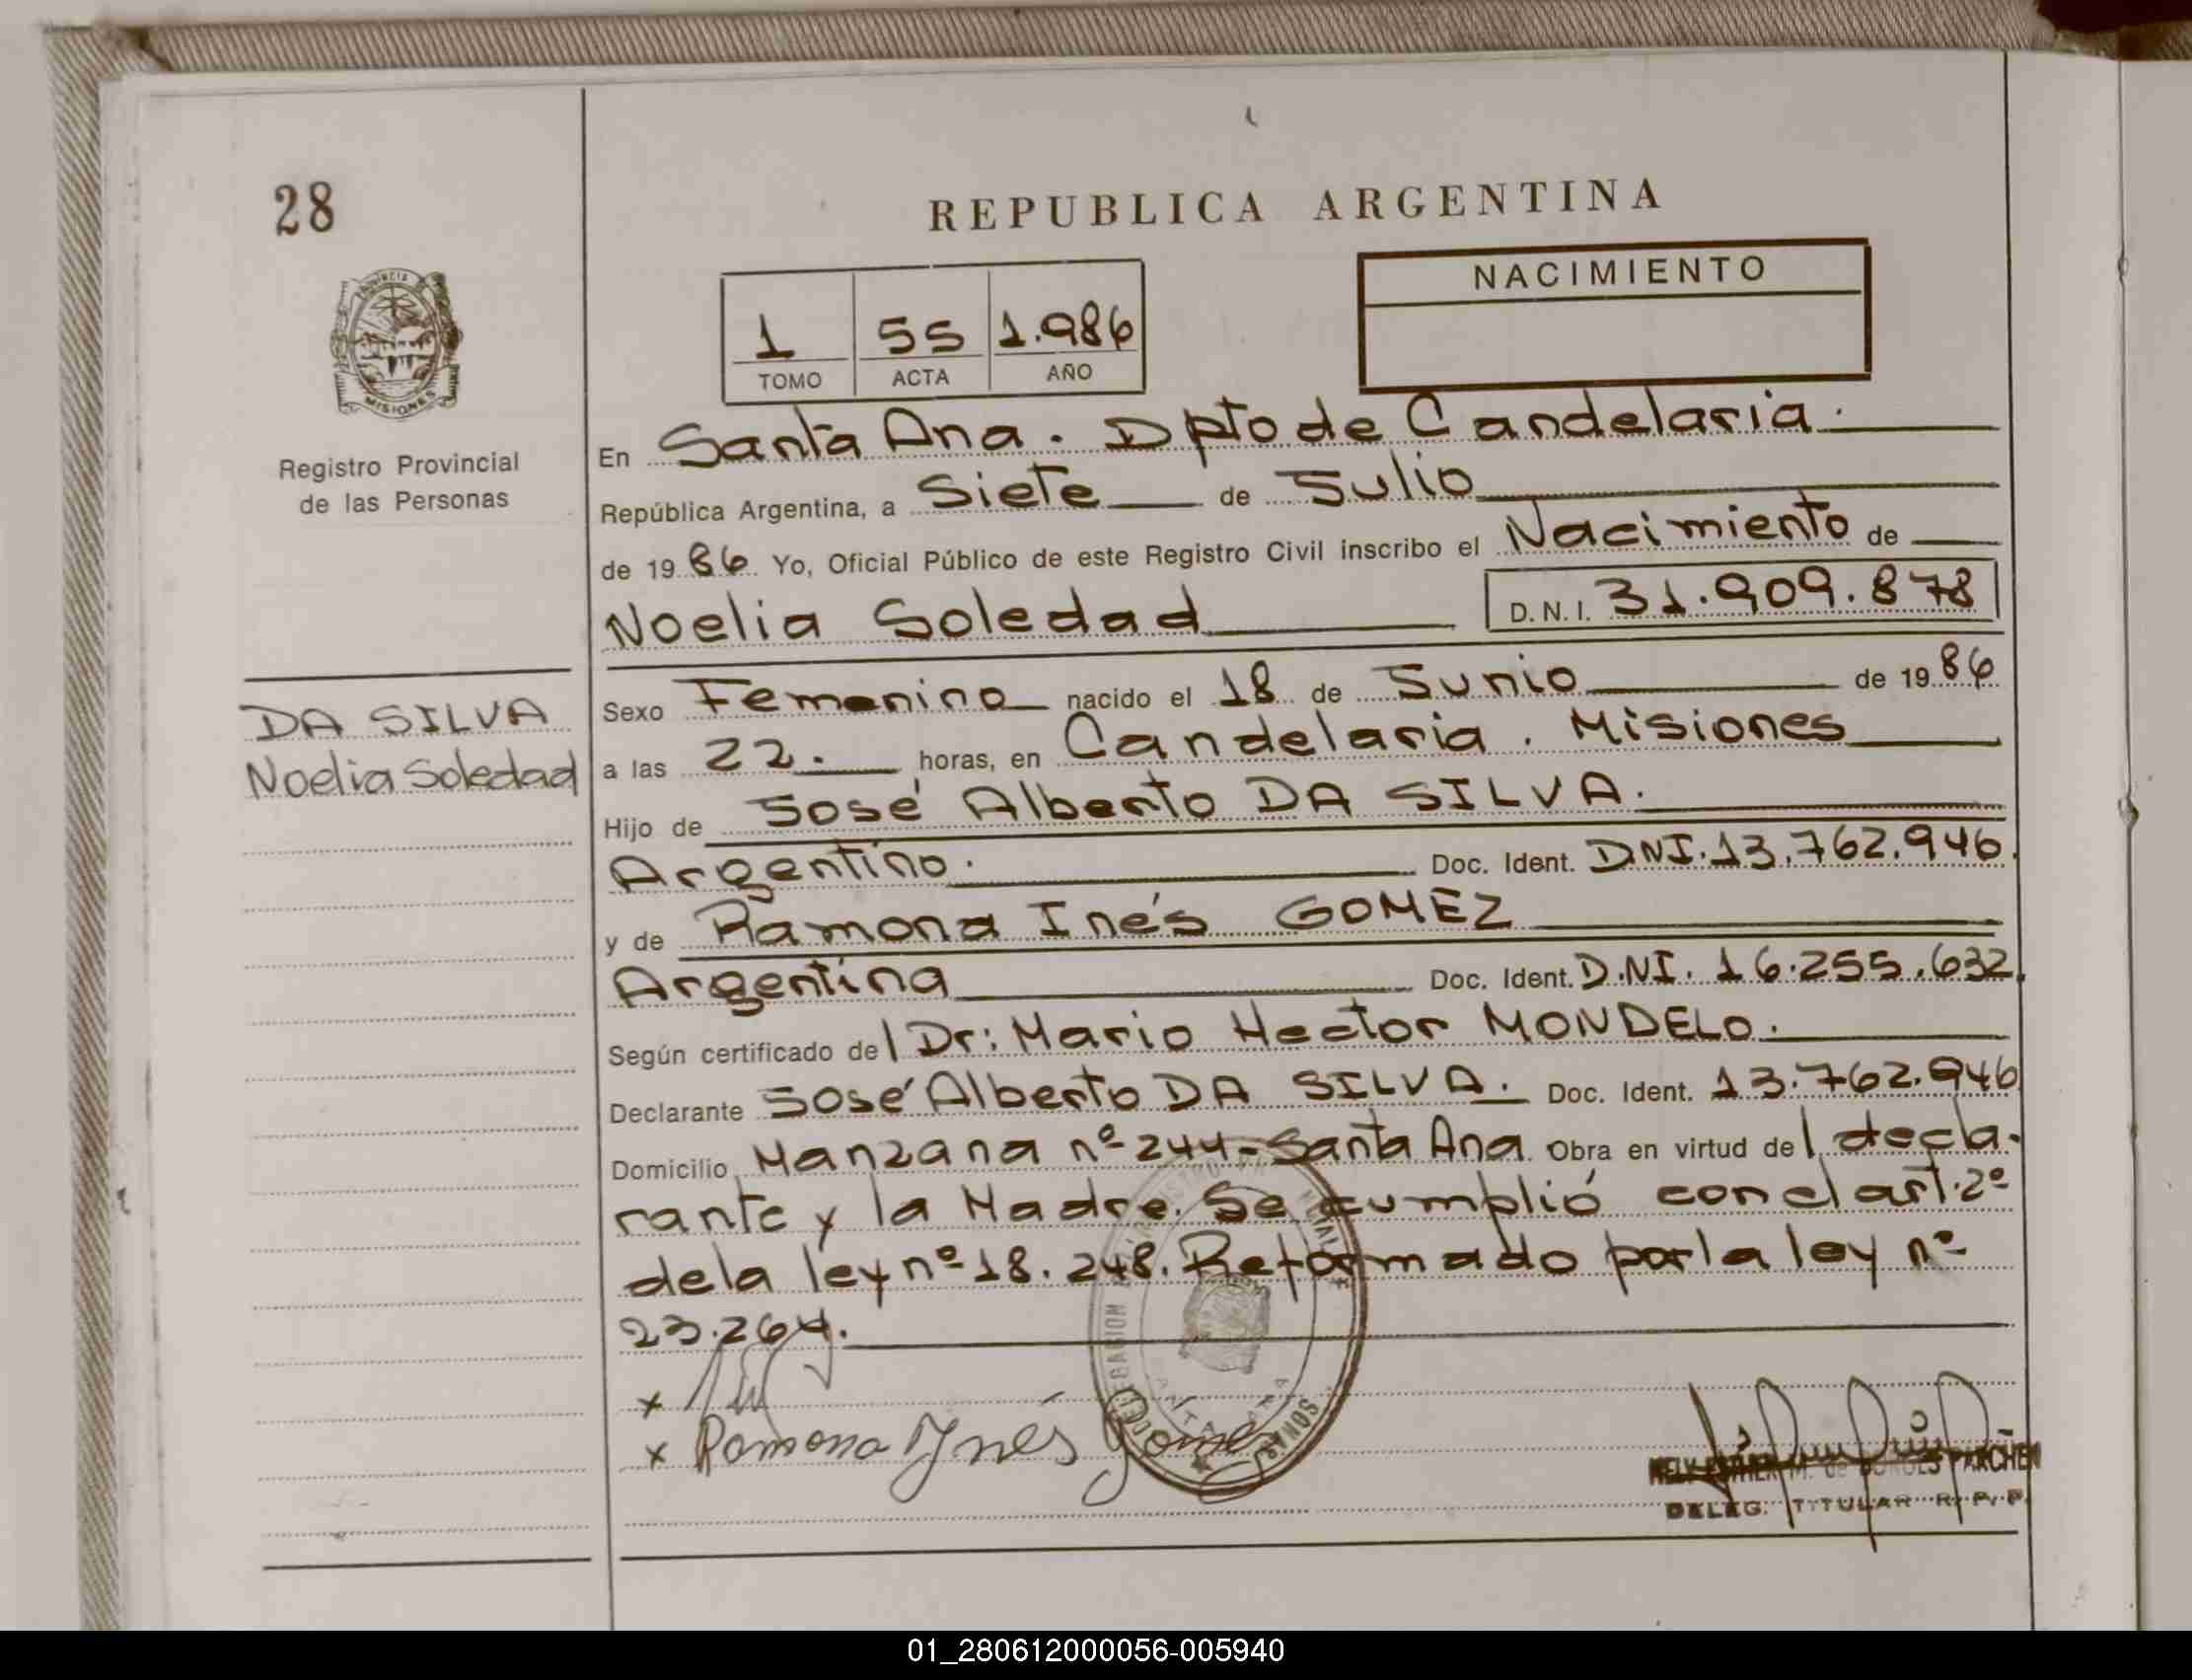 28
REPUBLICA ARGENTINA
NACIMIENTO
1 55 1.986
TOMO ACTA AÑO
PROVINCIA DE
MISIONES
Registro Provincial
de las Personas
En Santa Ana. Dpto de Candelaria.
República Argentina, a Siete de Julio
de 1986 Yo, Oficial Público de este Registro Civil inscribo el Nacimiento de
Noelia Soledad D.N.I. 31.909.878
DA SILVA
Noelia Soledad
Sexo Femenino nacido el 18 de Junio de 1986
a las 22. horas, en Candelaria. Misiones
Hijo de José Alberto DA SILVA.
Argentino. Doc. Ident. DNI.13.762.946.
y de Ramona Inés GOMEZ
Argentina Doc. Ident. D.NI. 16.255.632.
Según certificado del Dr: Mario Hector MONDELO.
Declarante José Alberto DA SILVA. Doc. Ident. 13.762.946
Domicilio Manzana nº 244-Santa Ana Obra en virtud del decla-
rante y la Madre. Se cumplió con el art. 2º
de la ley nº 18.248. Reformado por la ley nº
23.264.
x
x Ramona Ynés Gomez
PARCHEN
DELEG. TITULAR R.P.P.
01_280612000056-005940